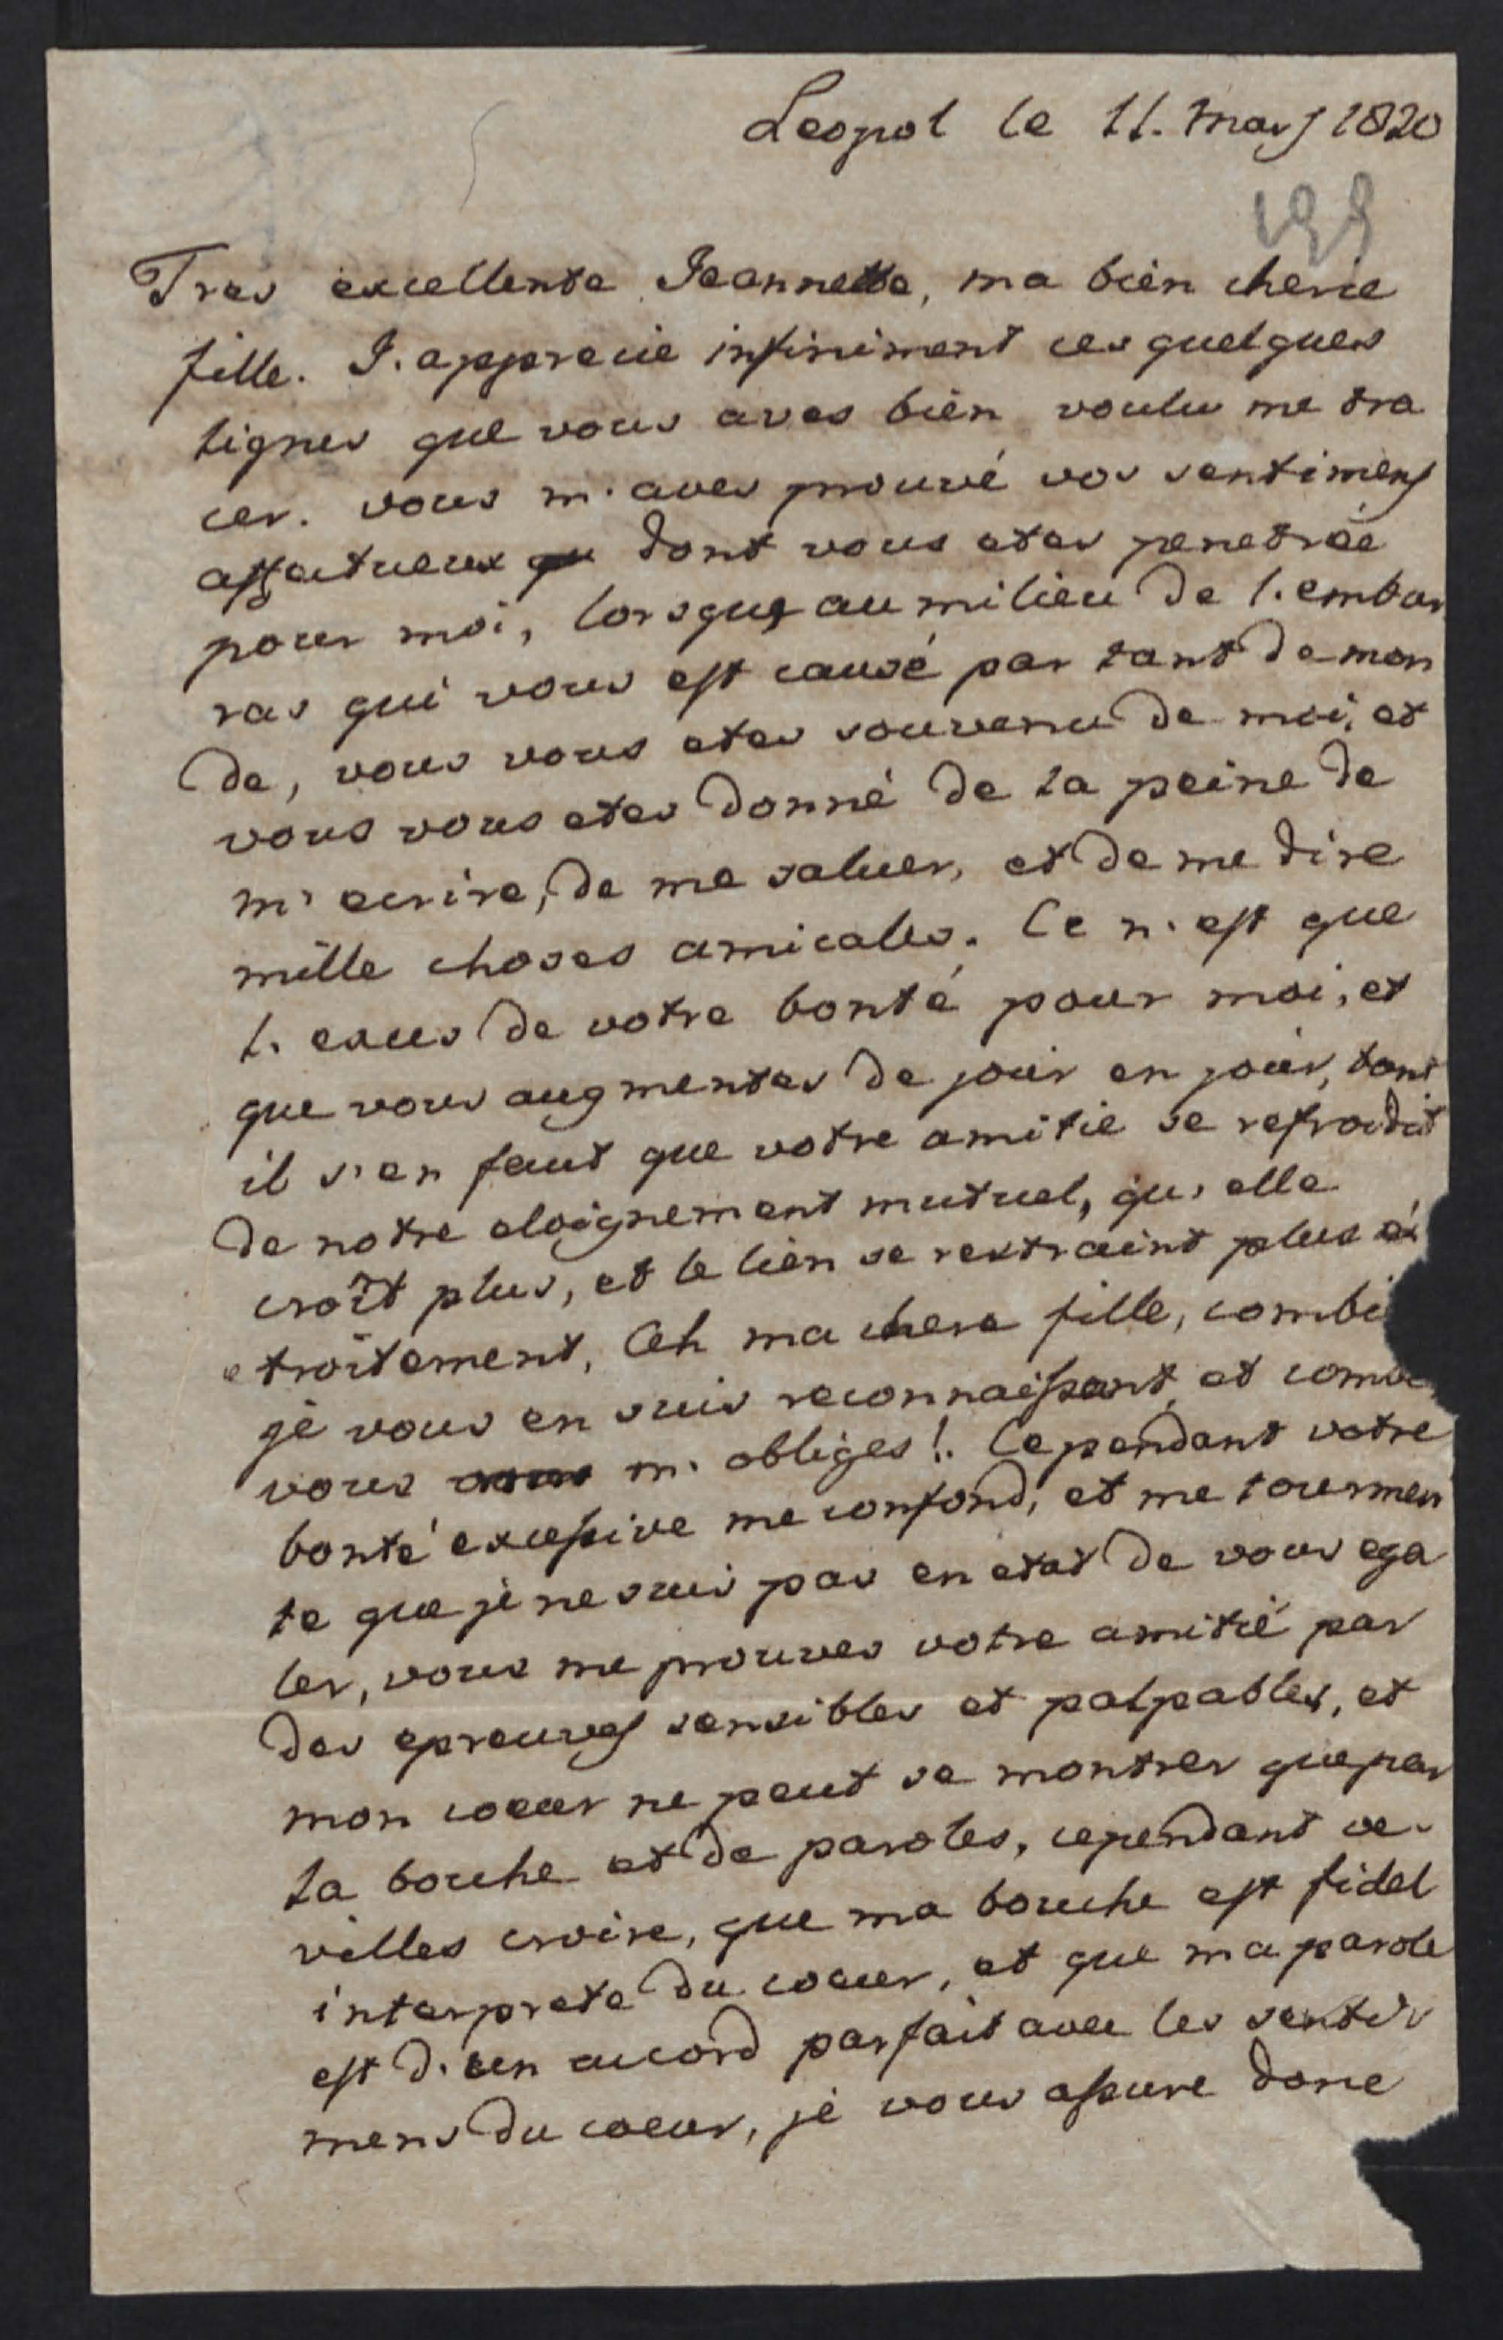 Leopol le 11. Mars 1820
199
Tres excellente Jeannette, ma bien cherie
fille. J'apprecie infiniment ces quelques
lignes que vous aves bien voulu me tra
cer. vous m'aves prouvé vos sentimens
affectueux dont vous etes penetrée
pour moi, lorsque au milieu de l'embar
ras qui vous est causé par tant de mon
de, vous vous etes souvenu de moi, et
vous vous etes donné de la peine de
m'ecrire, de me saluer, et de me dire
mille choses amicales. Ce n'est que
l'exces de votre bonté pour moi, et
que vous augmentes de jour en jour, tant
il s'en faut que votre amitie se refroidit
de notre eloignement mutuel, qu'elle
croît plus, et le lien se restraint plus é
troitement, Ah ma chere fille, combi
je vous en suis reconnaissant, et comb
vous m'obliges! Cependant votre
bonté excessive me confond, et me tourmen
te que je ne suis pas en etat de vous ega
ler, vous me prouves votre amitié par
des epreuves sensibles et palpables, et
mon coeur ne peut se montrer que par
la bouche et de paroles, cependant ve
villes croire, que ma bouche est fidel
interprete du coeur, et que ma parole
est d'un accord parfait avec les senti
mens du coeur, je vous assure donc